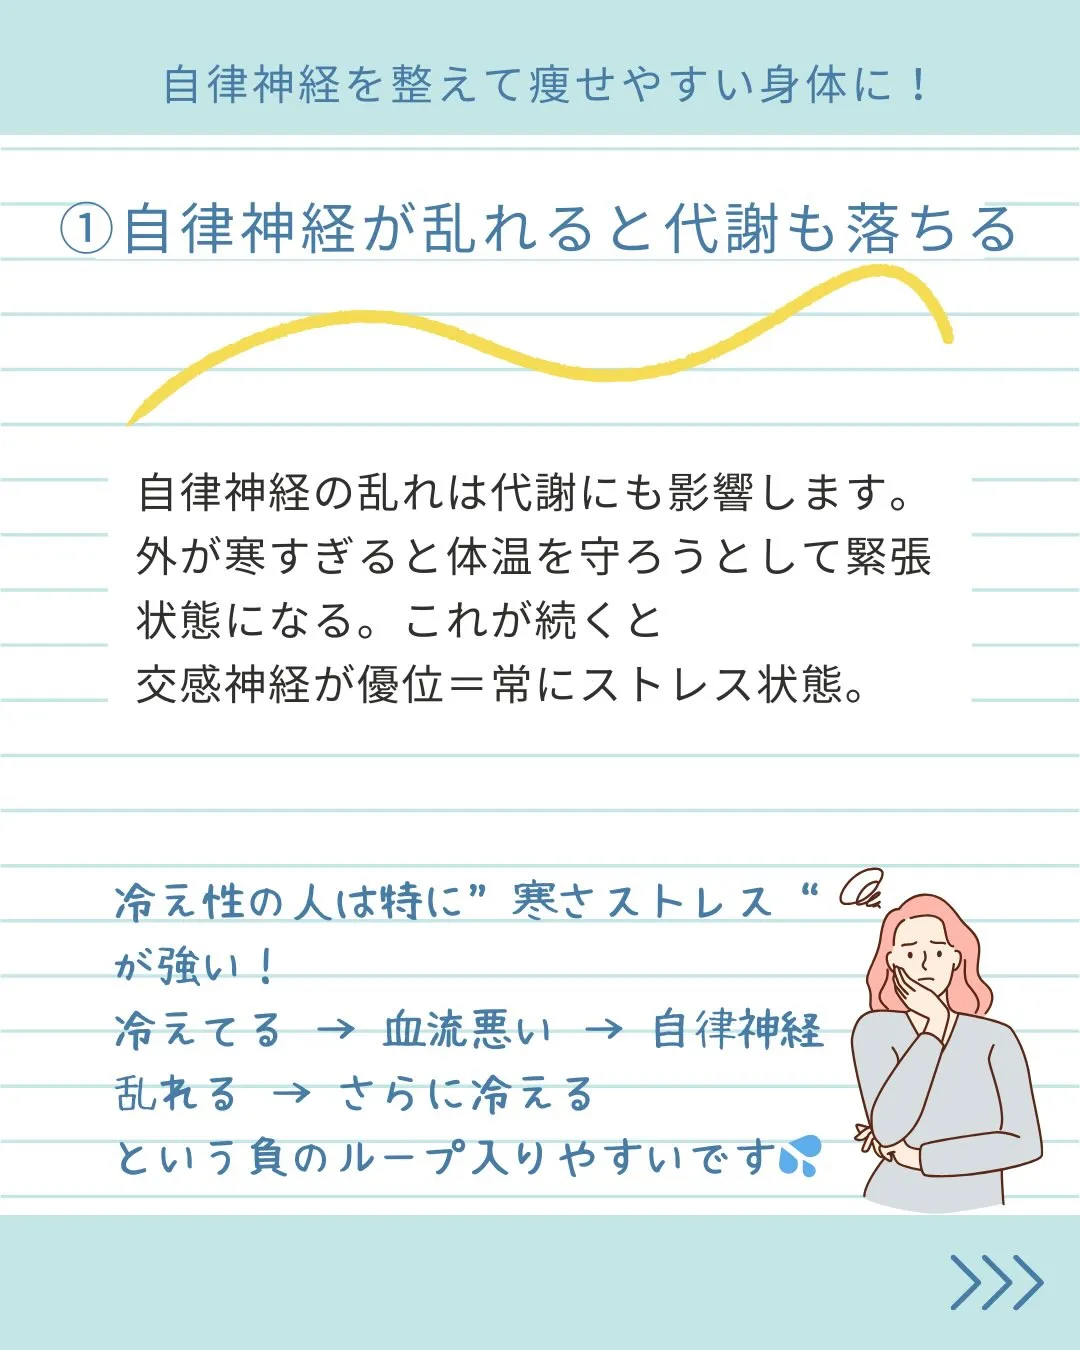 自律神経を整えて痩せやすい身体に！
①自律神経が乱れると代謝も落ちる
自律神経の乱れは代謝にも影響します。
外が寒すぎると体温を守ろうとして緊張
状態になる。これが続くと
交感神経が優位＝常にストレス状態。
冷え性の人は特に”寒さストレス“
が強い！
冷えてる → 血流悪い → 自律神経
乱れる → さらに冷える
という負のループ入りやすいです💦